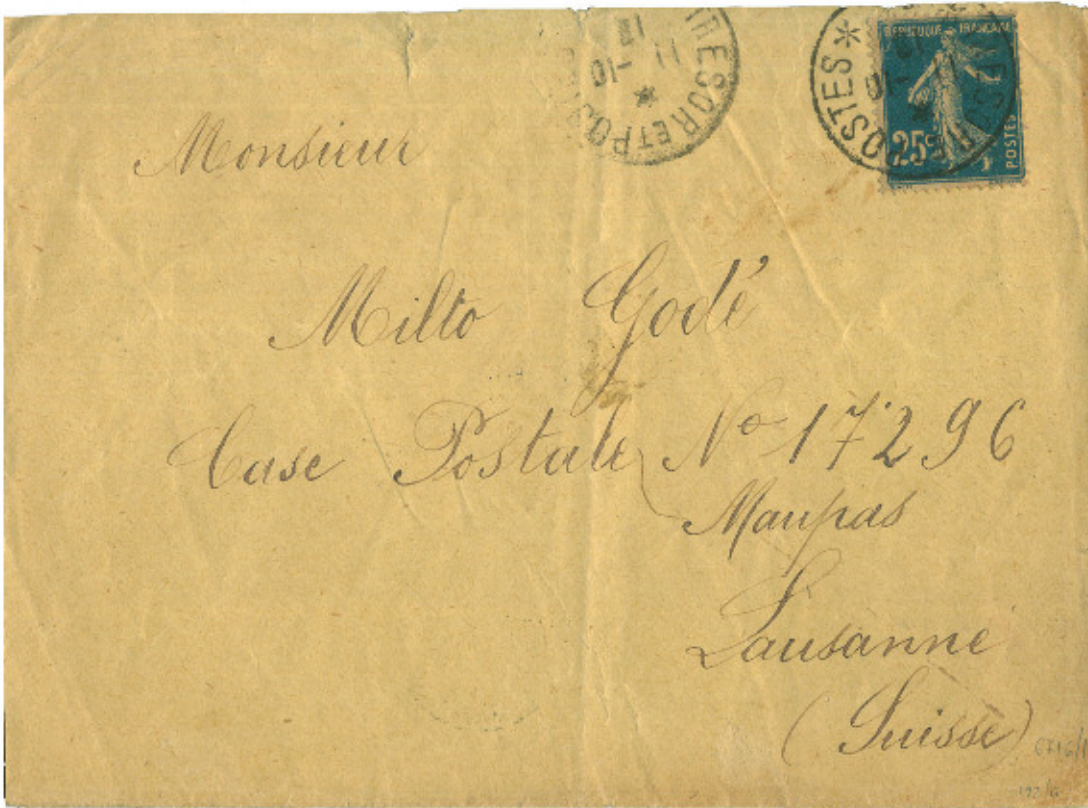 TRESOR ET POSTES
11 -10
* POSTES *
-10
REPUBLIQUE FRANCAISE
25c
POSTES
Monsieur
Milto Godé
Case Postale No 17296
Maupas
Lausanne
(Suisse)